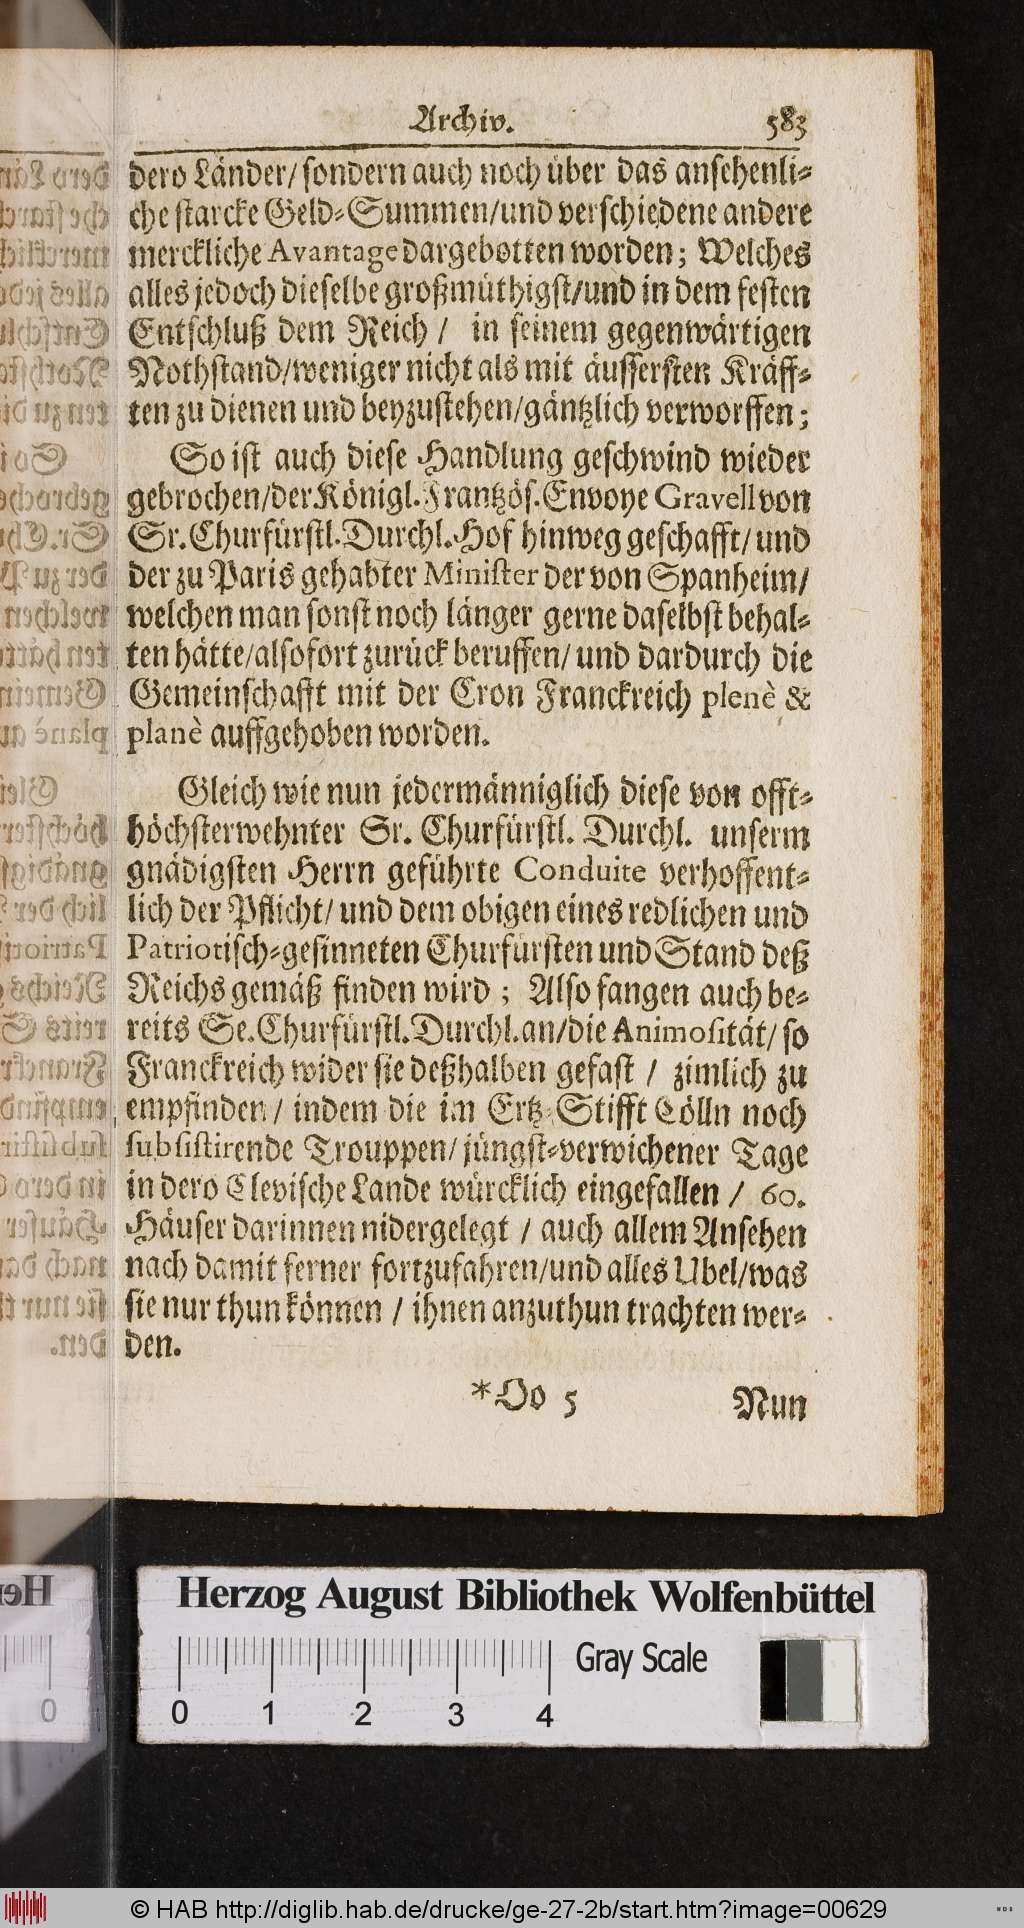 Archiv. 583
dero Länder/ sondern auch noch über das ansehenli-
che starcke Geld-Summen/und verschiedene andere
merckliche Avantage dargebotten worden; Welches
alles jedoch dieselbe großmüthigst/und in dem festen
Entschluß dem Reich / in seinem gegenwärtigen
Nothstand/weniger nicht als mit äussersten Kräff-
ten zu dienen und beyzustehen/gäntzlich verworffen;
So ist auch diese Handlung geschwind wieder
gebrochen/der Königl. Frantzös. Envoye Gravell von
Sr. Churfürstl. Durchl. Hof hinweg geschafft/ und
der zu Paris gehabter Minister der von Spanheim/
welchen man sonst noch länger gerne daselbst behal-
ten hätte/alsofort zurück beruffen/ und dardurch die
Gemeinschafft mit der Cron Franckreich plenè &
planè auffgehoben worden.
Gleich wie nun jedermänniglich diese von offt-
höchsterwehnter Sr. Churfürstl. Durchl. unserm
gnädigsten Herrn geführte Conduite verhoffent-
lich der Pflicht/ und dem obigen eines redlichen und
Patriotisch-gesinneten Churfürsten und Stand deß
Reichs gemäß finden wird ; Also fangen auch be-
reits Se. Churfürstl. Durchl. an/die Animosität/ so
Franckreich wider sie deßhalben gefast / zimlich zu
empfinden/ indem die im Ertz-Stifft Cölln noch
subsistirende Trouppen/ jüngst-verwichener Tage
in dero Clevische Lande würcklich eingefallen / 60.
Häuser darinnen nidergelegt / auch allem Ansehen
nach damit ferner fortzufahren/und alles Ubel/was
sie nur thun können / ihnen anzuthun trachten wer-
den.
*Oo 5 Nun
Herzog August Bibliothek Wolfenbüttel
Gray Scale
0 1 2 3 4
© HAB http://diglib.hab.de/drucke/ge-27-2b/start.htm?image=00629